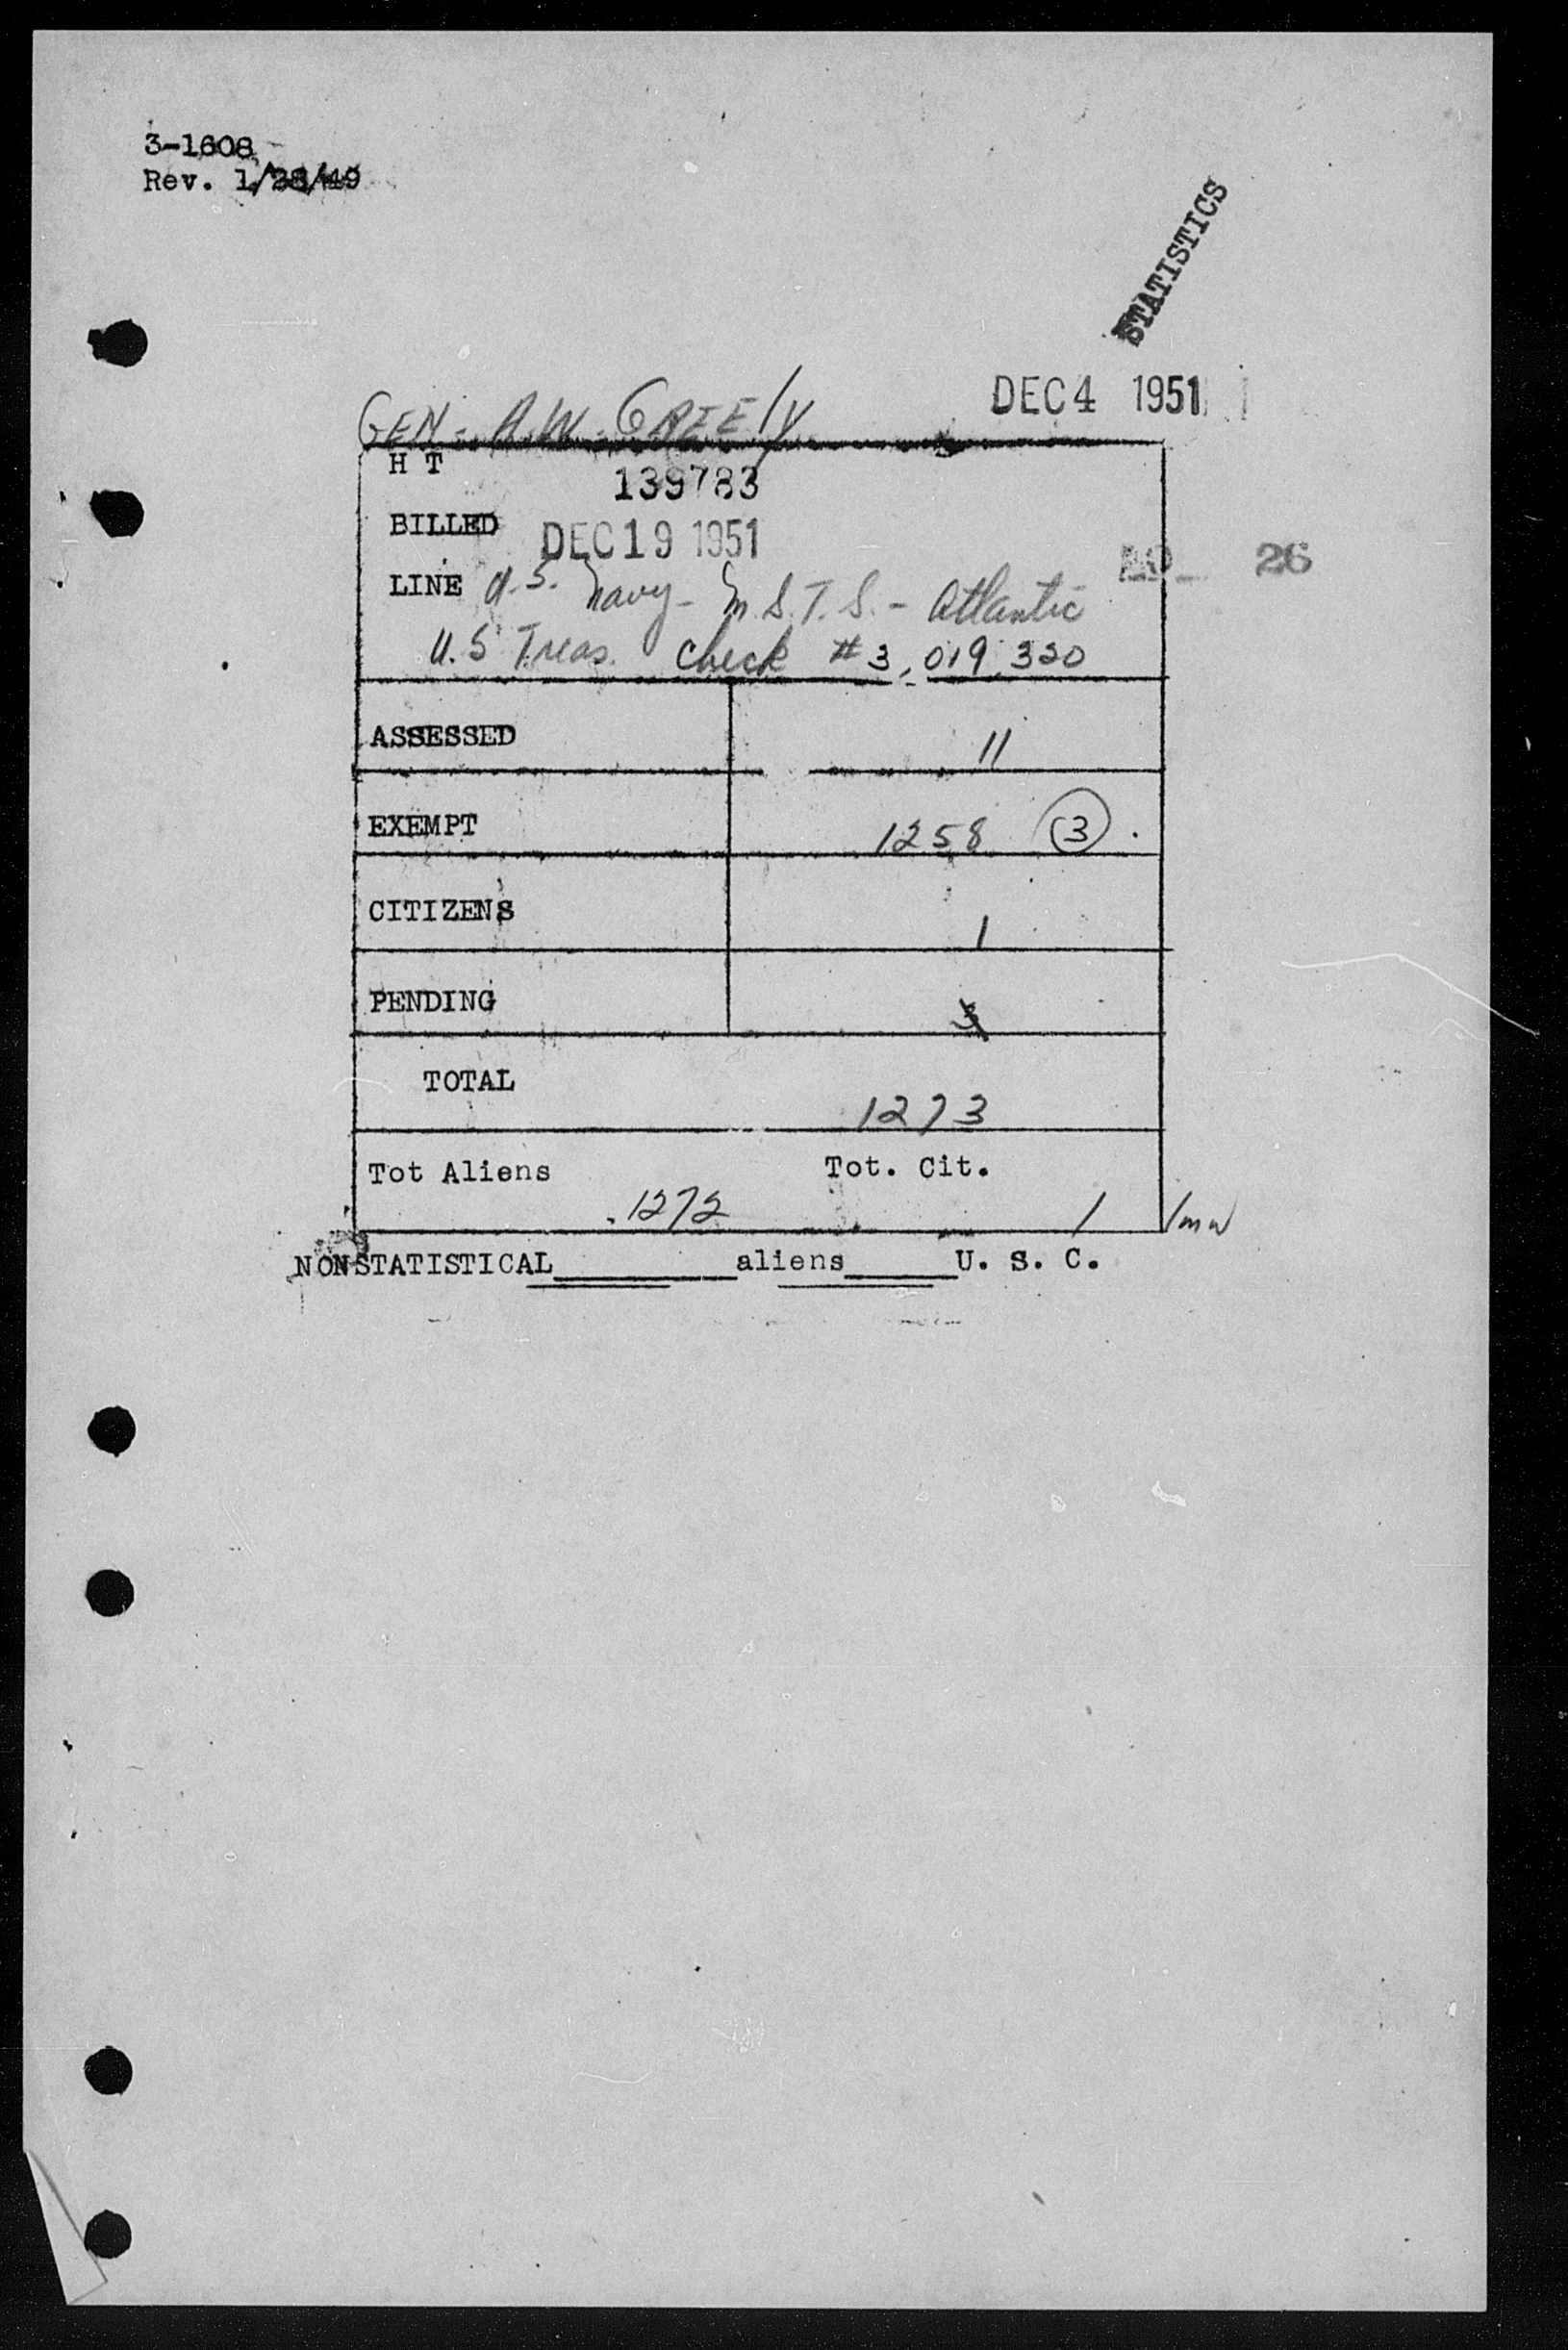 3-1608
Rev. 1/28/49
STATISTICS
DEC 4 1951
GEN. A.W. GREELY
H T 139783
BILLED DEC 19 1951
26
LINE U.S. Navy - M.S.T.S. - Atlantic
U.S Treas. Check # 3,019,320
ASSESSED 11
EXEMPT 1258 (3)
CITIZENS 1
PENDING 3
TOTAL 1273
Tot Aliens Tot. Cit.
1272 1
NONSTATISTICAL aliens U. S. C.